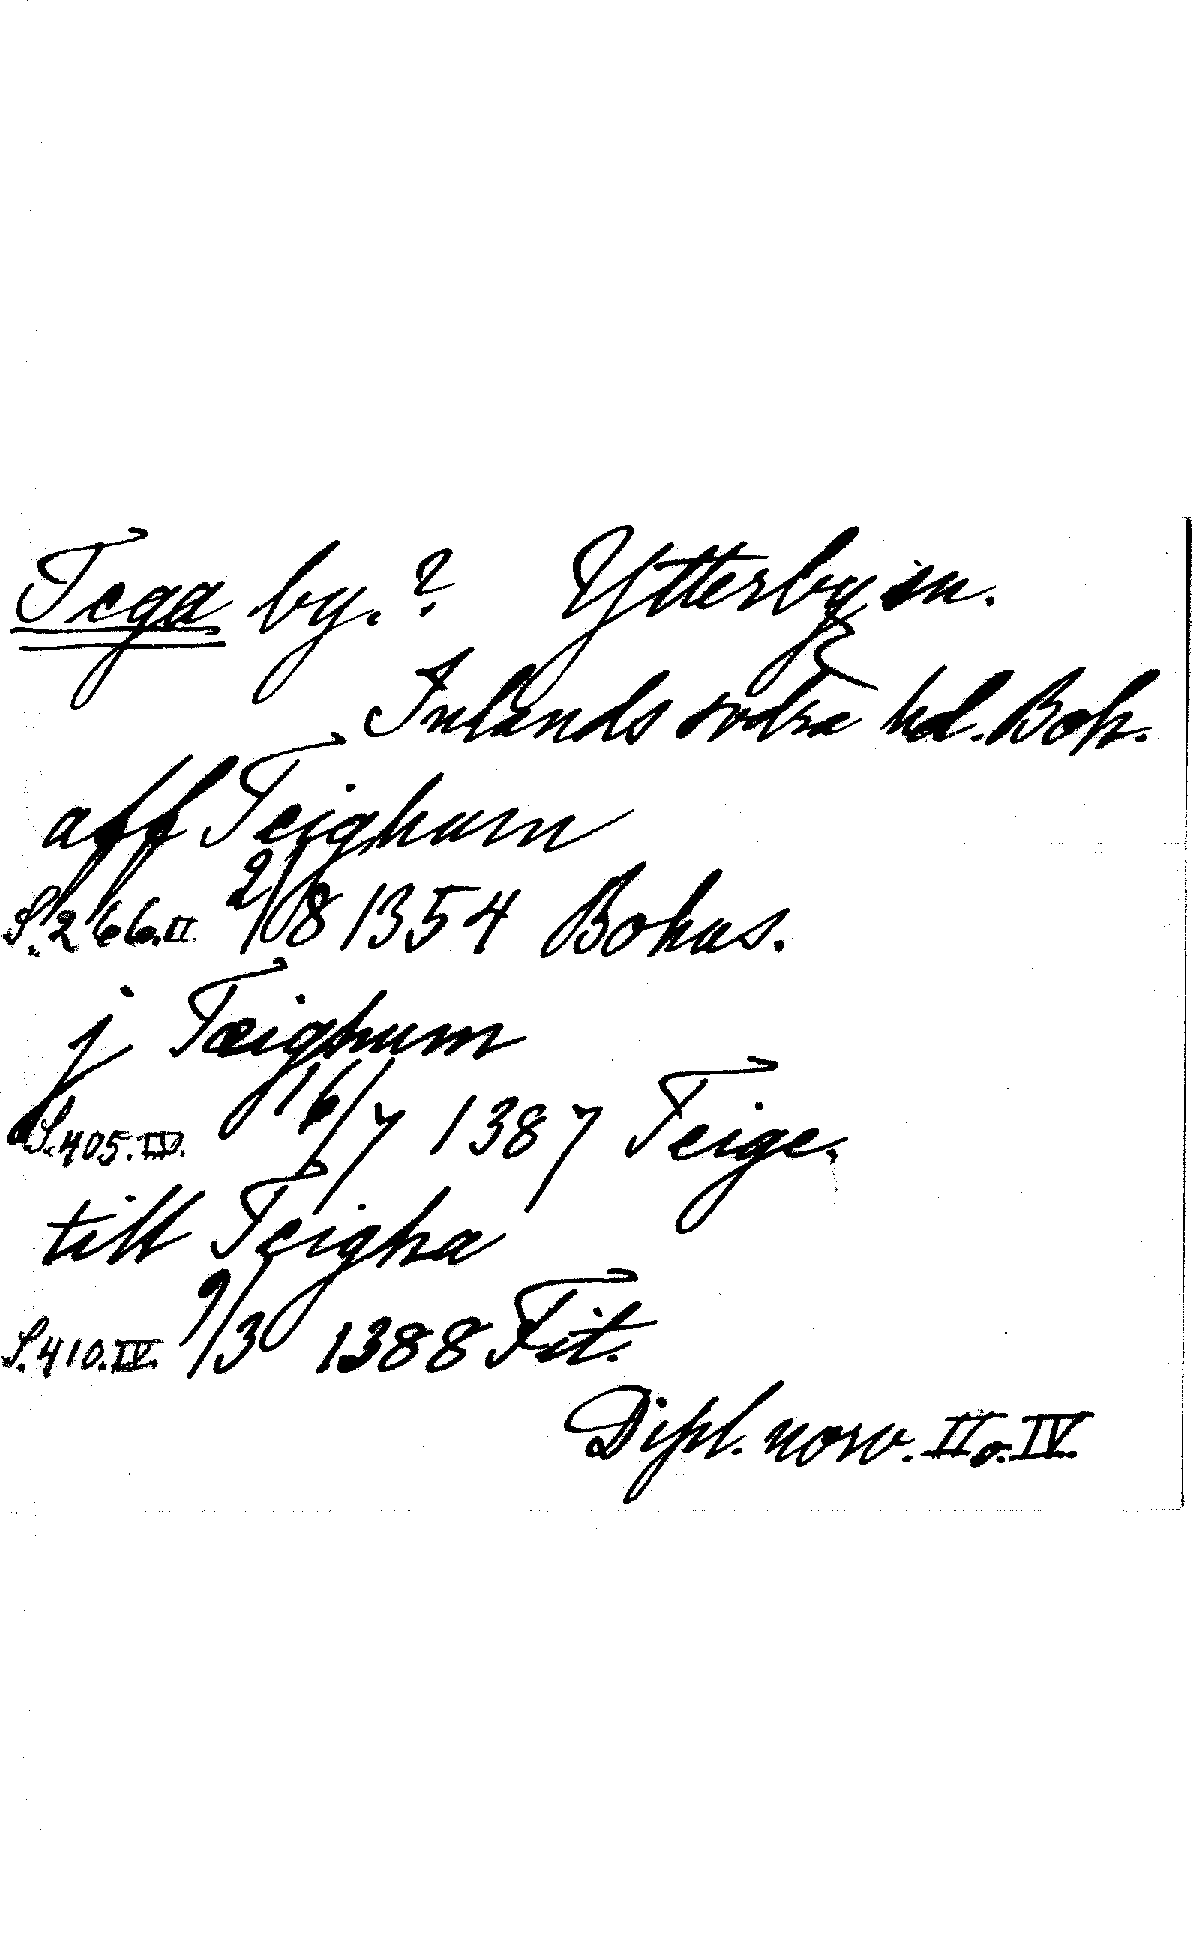 Tega by.? Ytterby sn.
Inlands södra hd. Boh.
aff Teighum
S. 266. II 2/8 1354 Bohus.
j Tæighum
S. 405. IV. 16/7 1387 Teige.
till Teigha
S. 410. IV. 9/3 1388 Fit.
Dipl. norv. II o. IV.